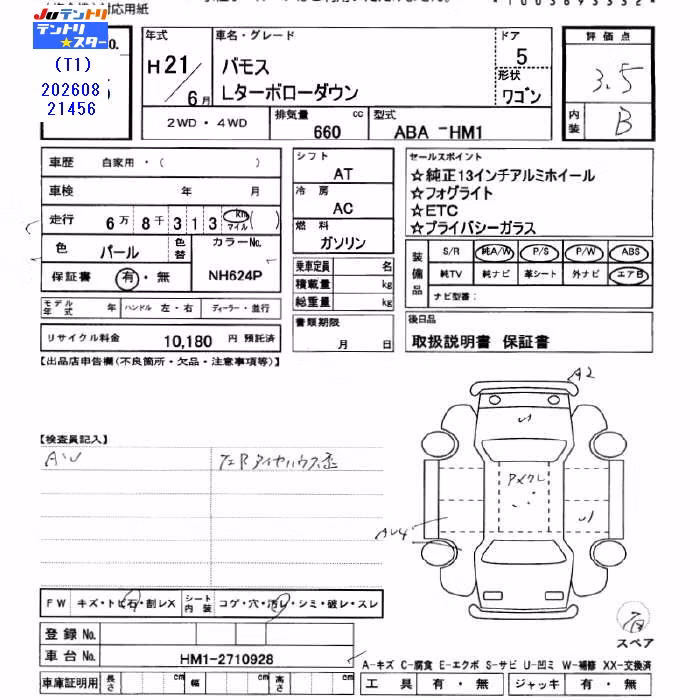 対応用紙
Juテントリ
テントリ
★スター
(T1)
202608
21456
No.
年式
H21/6月
車名・グレード
バモス
Lターボローダウン
ドア
5
形状
ワゴン
評価点
3.5
内装
B
2WD・4WD
排気量
660 cc
型式
ABA-HM1
車歴 自家用・( )
車検 年 月
走行 6万 8千 3 1 3 km マイル ( )
色 パール 色替 カラーNo. NH624P
保証書 有・無
シフト
AT
冷房
AC
燃料
ガソリン
乗車定員 名
積載量 kg
総重量 kg
書類期限
月 日
セールスポイント
☆純正13インチアルミホイール
☆フォグライト
☆ETC
☆プライバシーガラス
装備品
S/R 純A/W P/S P/W ABS
純TV 純ナビ 革シート 外ナビ エアB
ナビ型番:
モデル年式 年 ハンドル 左・右 ディーラー・並行
リサイクル料金 10,180 円 預託済
後日品
取扱説明書 保証書
【出品店申告欄(不良箇所・欠品・注意事項等)】
【検査員記入】
A・U
A2
AU4
FW キズ・トビ石・割レX シート内装 コゲ・穴・汚レ・シミ・破レ・スレ
登録No.
車台No. HM1-2710928
車庫証明用 長さ cm 幅 cm 高さ cm
有
スペア
A-キズ C-腐食 E-エクボ S-サビ U-凹ミ W-補修 XX-交換済
工具 有・無 ジャッキ 有・無